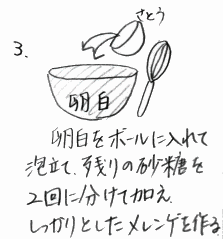 さとう
3.
卵白
卵白をボールに入れて
泡立て、残りの砂糖を
2回に分けて加え
しっかりとしたメレンゲを作る